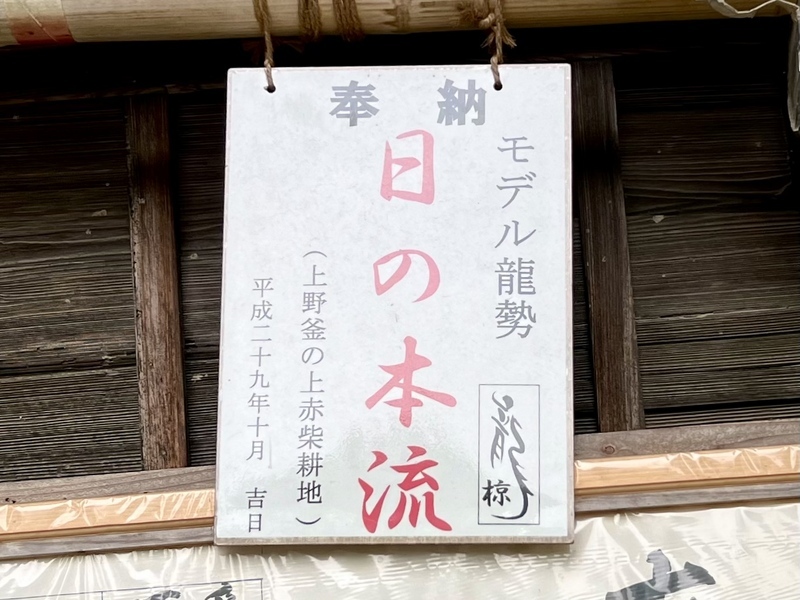 奉納
モデル龍勢
日の本流
（上野釜の上赤柴耕地）
平成二十九年十月 吉日
椋